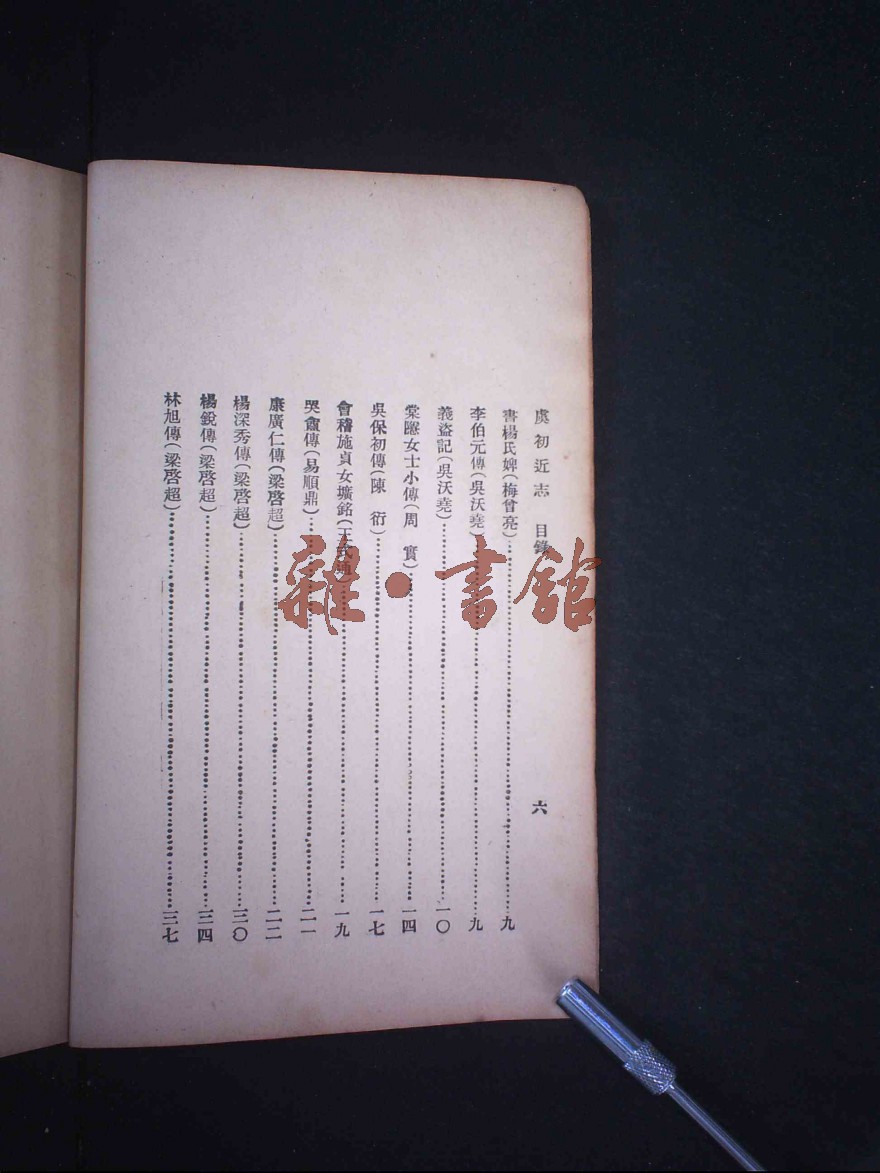 虞初近志 目錄 六
書楊氏婢(梅曾亮)…………九
李伯元傳(吳沃堯)…………九
義盜記(吳沃堯)…………一〇
棠隱女士小傳(周 實)…………一四
吳保初傳(陳 衍)…………一七
會稽施貞女壙銘(王式通)…………一九
哭盦傳(易順鼎)…………二一
康廣仁傳(梁啓超)…………二二
楊深秀傳(梁啓超)…………三〇
楊銳傳(梁啓超)…………三四
林旭傳(梁啓超)…………三七
雜·書館